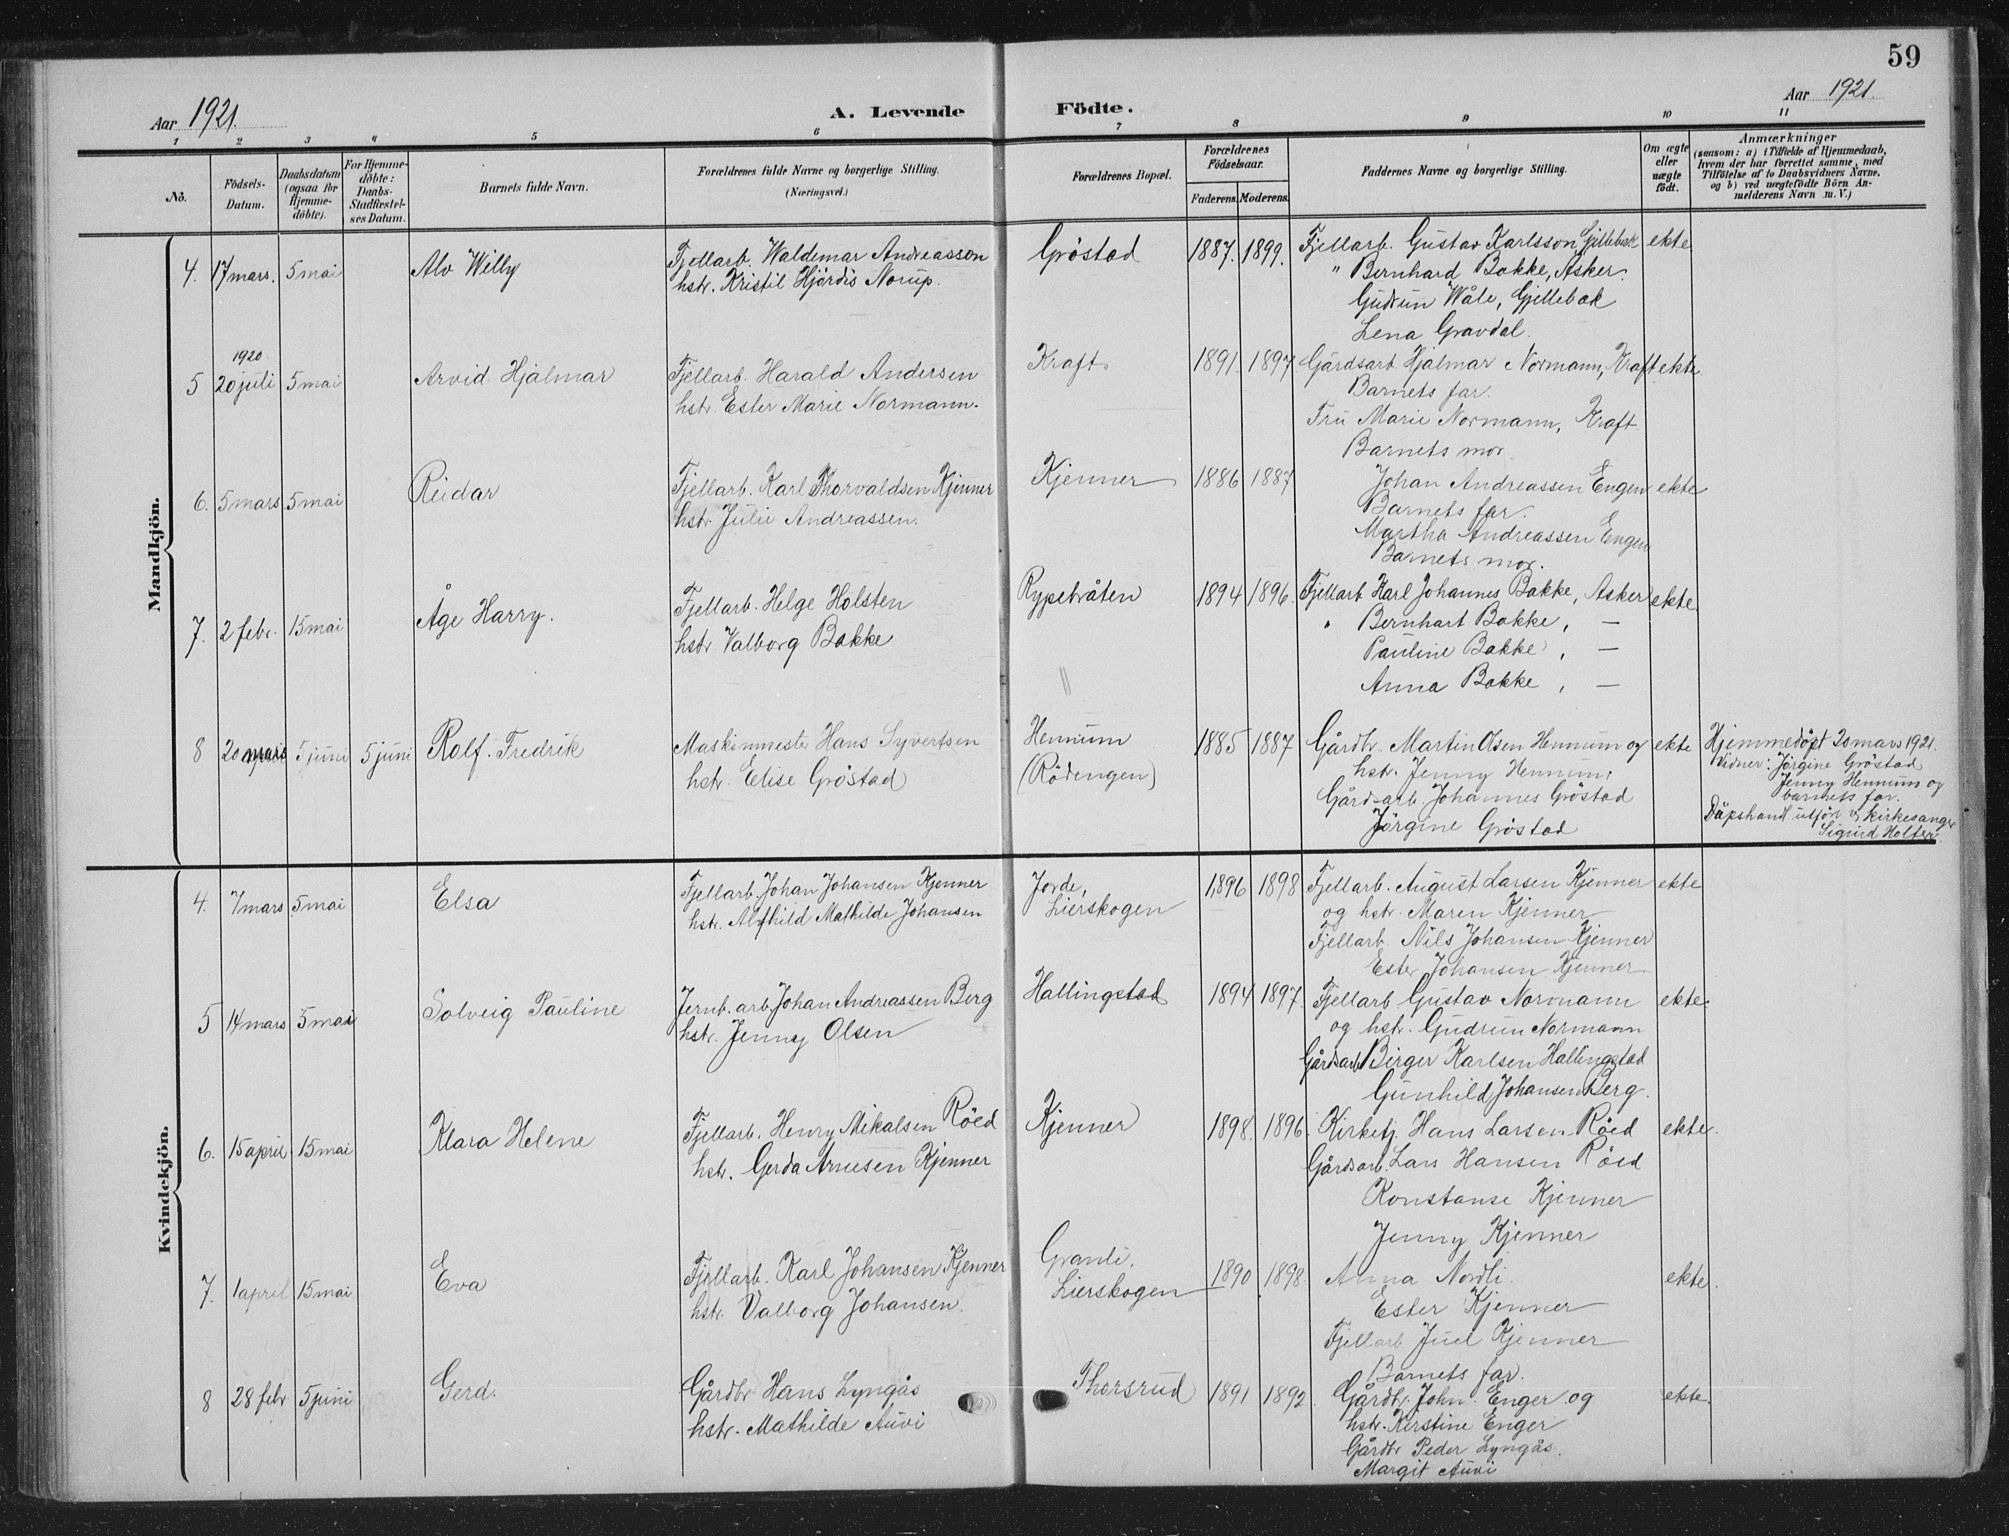 59
Aar 1921.
A. Levende Födte.
Aar 1921.
1 2 3 4 5 6 7 8 9 10 11
No.
Födsels-Datum.
Daabsdatum (ogsaa for Hjemme-döbte).
For Hjemme-döbte: Daabs-Stadfæstel-ses Datum.
Barnets fulde Navn.
Forældrenes fulde Navne og borgerlige Stilling.
(Næringsvei.)
Forældrenes Bopæl.
Forældrenes Födselsaar.
Faderens. Moderens.
Faddernes Navne og borgerlige Stilling.
Om ægte eller uægte födt.
Anmærkninger
(saasom: a) i Tilfælde af Hjemmedaab,
hvem der har forrettet samme, med
Tilföielse af to Daabsvidners Navne,
og b) ved uægtefödte Börn An-
melderens Navn m. V.)
Mandkjön.
4. 17 mars. 5 mai Alv Willy
Fjellarb. Waldemar Andreasson
hstr. Kristil Hjördis Norup.
Gröstad 1887. 1899.
Fjellarb. Gustav Karlsson, Gjellebæk ekte
" Bernhard Bakke, Asker.
Gudrun Wåle, Gjellebæk
Lena Gravdal.
1920
5 20 juli 5 mai Arvid Hjalmar
Fjellarb. Harald Andersen
hstr. Ester Marie Normann.
Kraft 1891. 1897
Gårdsarb. Hjalmar Normann, Kraft ekte
Barnets far.
Fru Marie Normann, Kraft
Barnets mor.
6. 5 mars 5 mai Reidar
Fjellarb. Karl Thorvaldsen Kjenner
hstr. Julie Andreassen.
Kjenner 1886 1887
Johan Andreassen Engen ekte
Barnets far.
Martha Andreassen Engen
Barnets mor.
7. 2 febr. 15 mai Åge Harry.
Fjellarb. Helge Holsten
hstr. Valborg Bakke
Rypebråten 1894 1896.
Fjellarb. Karl Johannes Bakke, Asker ekte
" Bernhart Bakke, —
Pauline Bakke, —
Anna Bakke, —
8 20 mars 5 juni 5 juni Rolf Fredrik
Maskinmester Hans Syvertsen
hstr. Elise Gröstad
Hennum
(Rödengen)
1885 1887
Gårdbr. Martin Olsen Hennum og ekte
hstr. Jenny Hennum.
Gårdsarb. Johannes Gröstad
Jörgine Gröstad
Hjemmedöpt 20 mars 1921.
Vidner: Jörgine Gröstad
Jenny Hennum og
barnets far.
Dåpshandl utfört v/ kirkesanger
Sigurd Holter
Kvindekjön.
4. 7 mars 5 mai Elsa
Fjellarb. Johan Johansen Kjenner
hstr. Alfhild Mathilde Johansen
Jorde,
Lierskogen
1896 1898
Fjellarb. August Larsen Kjenner ekte
og hstr. Maren Kjenner
Fjellarb. Nils Johansen Kjenner
Ester Johansen Kjenner
5 14 mars 5 mai Solveig Pauline
Jernb. arb. Johan Andreassen Berg
hstr. Jenny Olsen
Hallingstad 1894 1897.
Fjellarb. Gustav Normann ekte
og hstr. Gudrun Normann
Gårdsarb. Birger Karlsen Hallingstad
Gunhild Johansen Berg.
6. 15 april 15 mai Klara Helene
Fjellarb. Henry Mikalsen Röed
hstr. Gerda Arnesen Kjenner
Kjenner 1898. 1896.
Kirketj. Hans Larsen Röed ekte.
Gårdsarb. Lars Hansen Röed
Konstanse Kjenner
Jenny Kjenner
7. 1 april 15 mai Eva
Fjellarb. Karl Johansen Kjenner
hstr. Valborg Johansen.
Granli,
Lierskogen
1890 1898.
Anna Nordli. ekte.
Ester Kjenner
Fjellarb. Juel Kjenner
Barnets far.
8 28 febr 5 juni Gerd.
Gårdbr. Hans Lyngås
hstr. Mathilde Auvi
Thorsrud 1891 1892
Gårdbr. John Enger og ekte.
hstr. Kerstine Enger
Gårdbr Peder Lyngås.
Margit Auvi